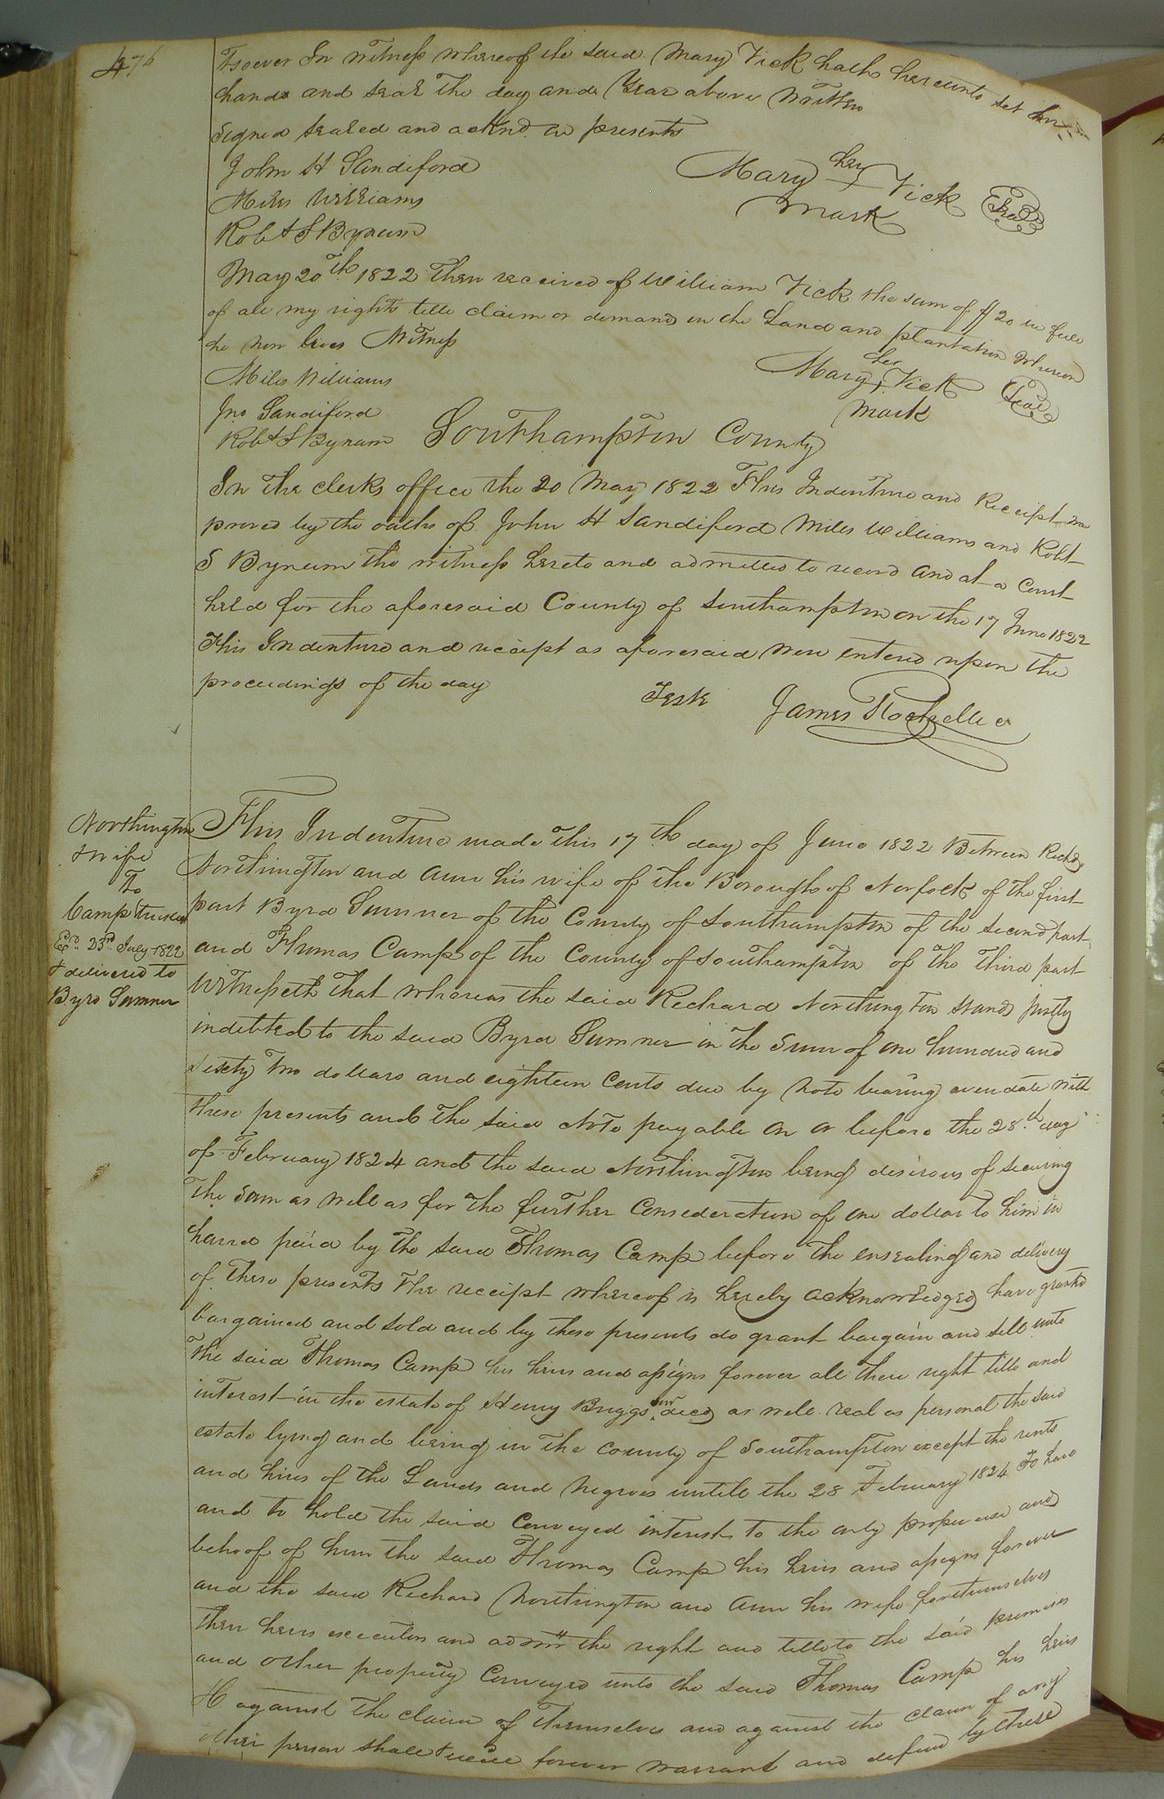 476
tsoever In witness whereof the said Mary Vick hath hereunto set her
hand and seal the day and year above written
Signed sealed and acknd in presents
John H Sandiford
Miles Williams
Robt S Bynum
Mary her Vick Seal
mark
May 20th 1822 Then received of William Vick the sum of $20 in full
of all my rights title claim or demand in the Land and plantation whereon
he now lives Witness
Miles Williams
Jno Sandiford
Robt S Bynam
her
Mary + Vick Seal
mark
Southampton County
In the clerks office the 20 May 1822 This Indenture and Receipt was
proved by the oaths of John H Sandiford Miles Williams and Robt
S Bynum the witness hereto and admitted to record and at a Court
held for the aforesaid County of Southampton on the 17 June 1822
This Indenture and receipt as aforesaid were entered upon the
proceedings of the day
Teste James Rochelle C
Northington
& wife
To
Camp trustee
Ex. 23rd July 1822
& delivered to
Byrd Sumner
This Indenture made this 17th day of June 1822 Between Richd
Northington and Ann his wife of the Borough of Norfolk of the first
part Byrd Sumner of the County of Southampton of the second part
and Thomas Camp of the County of Southampton of the third part
Witnesseth that whereas the said Richard Northington stand justly
indebted to the said Byrd Sumner in the Sum of one hundred and
sixty two dollars and eighteen cents due by note bearing even date with
these presents and the said note payable on or before the 28th day
of February 1824 and the said Northington being desirous of securing
the Sum as well as for the further Consideration of one dollar to him in
hand paid by the said Thomas Camp before the ensealing and delivery
of these presents the receipt whereof is hereby acknowledged have granted
bargained and sold and by these presents do grant bargain and sell unto
the said Thomas Camp his heirs and assigns forever all their right title and
interest in the estate of Henry Briggs Snr decd as well real as personal the said
estate lying and being in the county of Southampton except the rents
and hires of the Lands and Negroes untill the 28 February 1824 To have
and to hold the said Conveyed interest to the only proper use and
behoof of him the said Thomas Camp his heirs and assigns forever
and the said Richard Northington and Ann his wife for themselves
their heirs executors and admrs the right and title to the said premises
and other property Conveyed unto the said Thomas Camp his heirs
&c against the claim of themselves and against the claim of any
other person shall & will forever warrant and defend by these